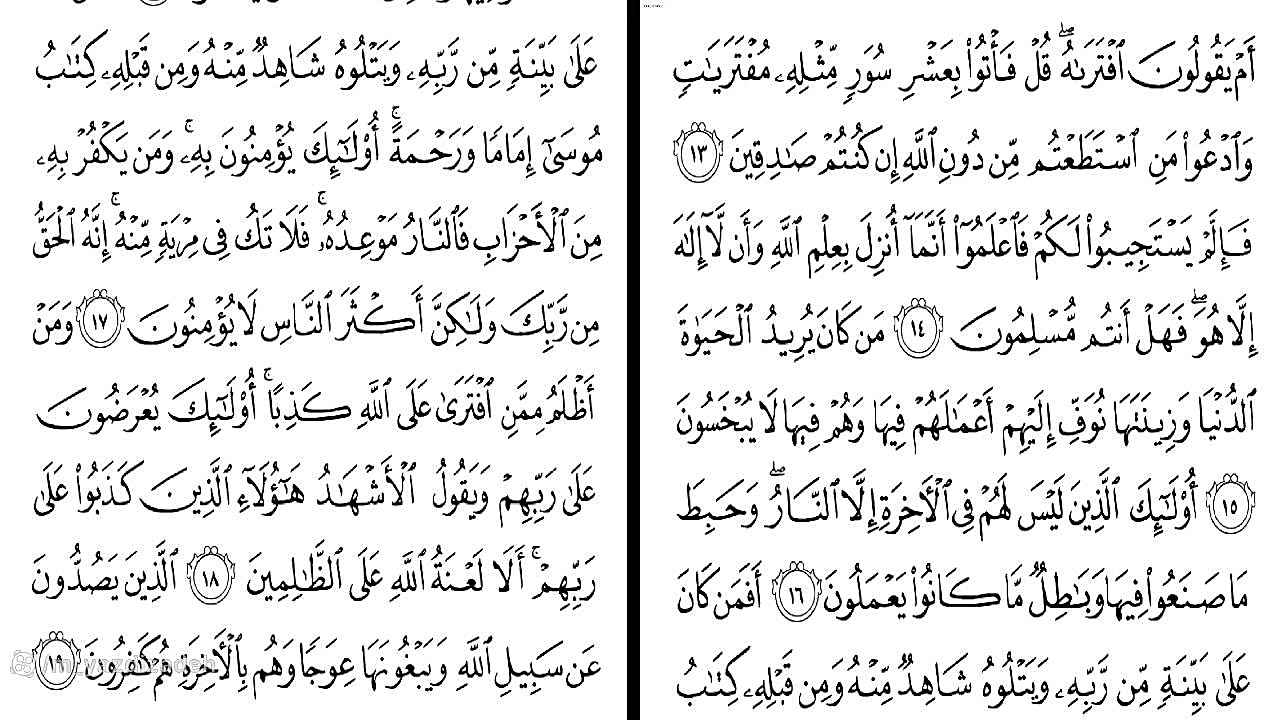 أَمْ يَقُولُونَ ٱفْتَرَىٰهُ ۖ قُلْ فَأْتُوا۟ بِعَشْرِ سُوَرٍ مِّثْلِهِۦ مُفْتَرَيَـٰتٍ
وَٱدْعُوا۟ مَنِ ٱسْتَطَعْتُم مِّن دُونِ ٱللَّهِ إِن كُنتُمْ صَـٰدِقِينَ ١٣
فَإِلَّمْ يَسْتَجِيبُوا۟ لَكُمْ فَٱعْلَمُوٓا۟ أَنَّمَآ أُنزِلَ بِعِلْمِ ٱللَّهِ وَأَن لَّآ إِلَـٰهَ
إِلَّا هُوَ ۖ فَهَلْ أَنتُم مُّسْلِمُونَ ١٤ مَن كَانَ يُرِيدُ ٱلْحَيَوٰةَ
ٱلدُّنْيَا وَزِينَتَهَا نُوَفِّ إِلَيْهِمْ أَعْمَـٰلَهُمْ فِيهَا وَهُمْ فِيهَا لَا يُبْخَسُونَ
١٥ أُو۟لَـٰٓئِكَ ٱلَّذِينَ لَيْسَ لَهُمْ فِى ٱلْـَٔاخِرَةِ إِلَّا ٱلنَّارُ ۖ وَحَبِطَ
مَا صَنَعُوا۟ فِيهَا وَبَـٰطِلٌ مَّا كَانُوا۟ يَعْمَلُونَ ١٦ أَفَمَن كَانَ
عَلَىٰ بَيِّنَةٍ مِّن رَّبِّهِۦ وَيَتْلُوهُ شَاهِدٌ مِّنْهُ وَمِن قَبْلِهِۦ كِتَـٰبُ
عَلَىٰ بَيِّنَةٍ مِّن رَّبِّهِۦ وَيَتْلُوهُ شَاهِدٌ مِّنْهُ وَمِن قَبْلِهِۦ كِتَـٰبُ
مُوسَىٰٓ إِمَامًا وَرَحْمَةً ۚ أُو۟لَـٰٓئِكَ يُؤْمِنُونَ بِهِۦ ۚ وَمَن يَكْفُرْ بِهِۦ
مِنَ ٱلْأَحْزَابِ فَٱلنَّارُ مَوْعِدُهُۥ ۚ فَلَا تَكُ فِى مِرْيَةٍ مِّنْهُ ۚ إِنَّهُ ٱلْحَقُّ
مِن رَّبِّكَ وَلَـٰكِنَّ أَكْثَرَ ٱلنَّاسِ لَا يُؤْمِنُونَ ١٧ وَمَنْ
أَظْلَمُ مِمَّنِ ٱفْتَرَىٰ عَلَى ٱللَّهِ كَذِبًا ۚ أُو۟لَـٰٓئِكَ يُعْرَضُونَ
عَلَىٰ رَبِّهِمْ وَيَقُولُ ٱلْأَشْهَـٰدُ هَـٰٓؤُلَآءِ ٱلَّذِينَ كَذَبُوا۟ عَلَىٰ
رَبِّهِمْ ۚ أَلَا لَعْنَةُ ٱللَّهِ عَلَى ٱلظَّـٰلِمِينَ ١٨ ٱلَّذِينَ يَصُدُّونَ
عَن سَبِيلِ ٱللَّهِ وَيَبْغُونَهَا عِوَجًا وَهُم بِٱلْـَٔاخِرَةِ هُمْ كَـٰفِرُونَ ١٩